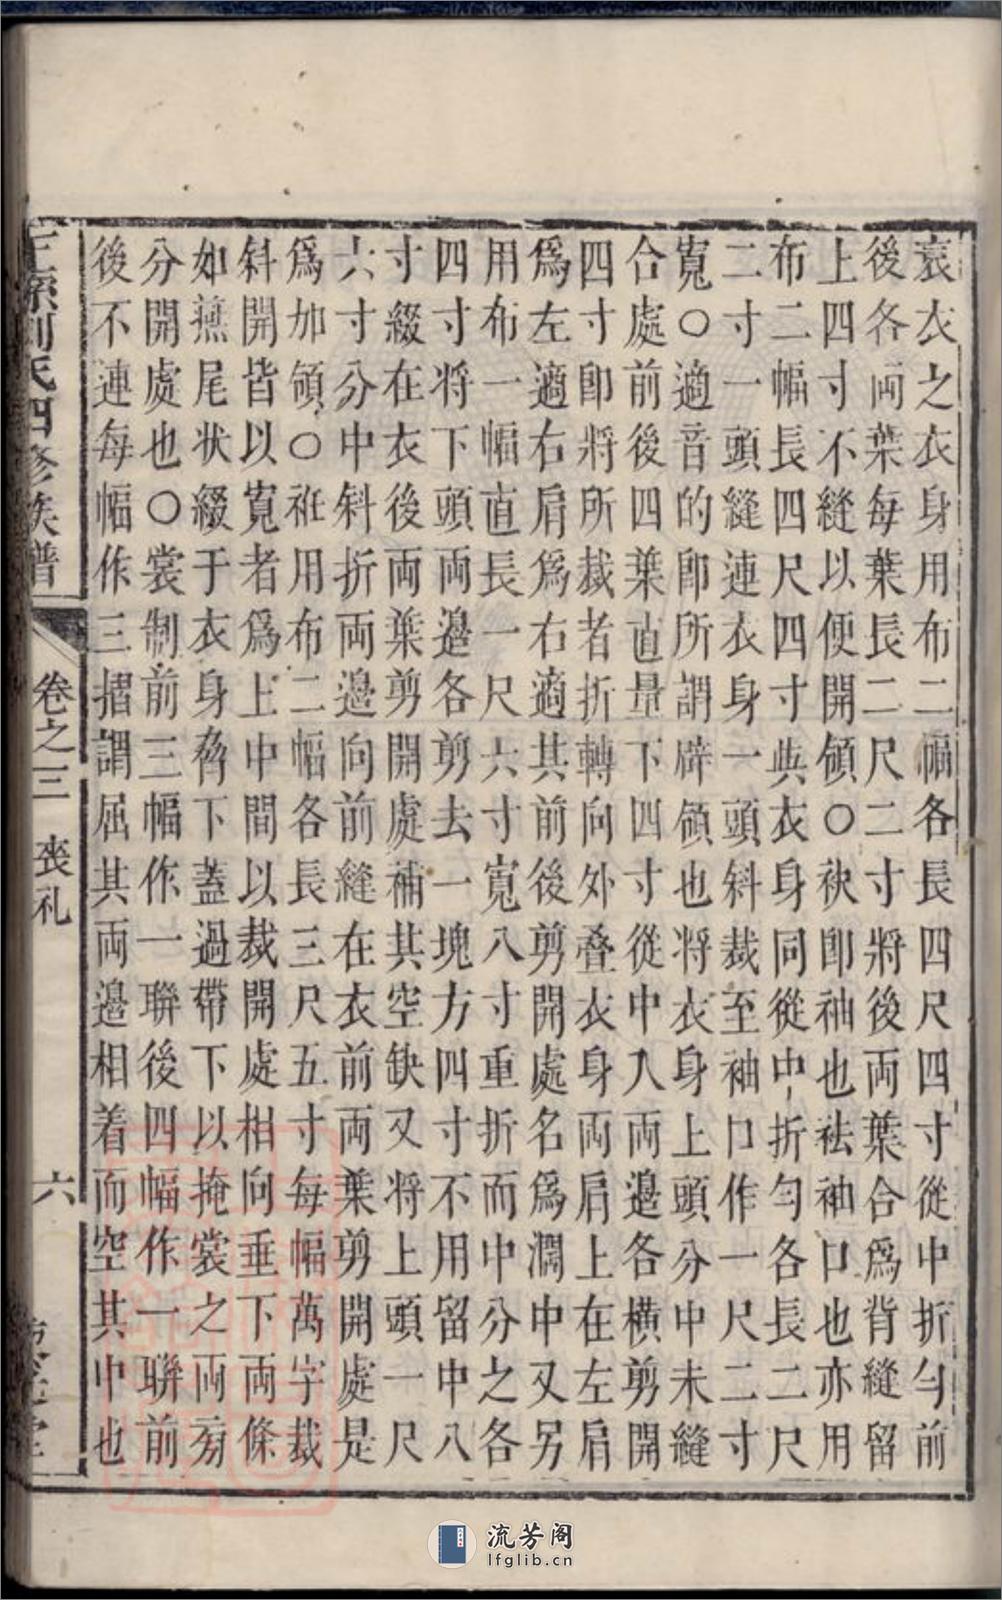 衰衣之衣身用布二幅各長四尺四寸從中折勻前
後各両葉每葉長二尺二寸將後両葉合爲背縫留
上四寸不縫以便開領○袂即袖也袪袖口也亦用
布二幅長四尺四寸與衣身同從中折勻各長二尺
二寸一頭縫連衣身一頭斜裁至袖口作一尺二寸
寬○適音的即所謂辟領也将衣身上頭分中未縫
合處前後四葉直量下四寸從中入両邉各横剪開
四寸即將所裁者折轉向外叠衣身両肩上在左肩
爲左適右肩爲右適其前後剪開處名爲濶中又另
用布一幅直長一尺六寸寬八寸重折而中分之各
四寸将下頭両邉各剪去一塊方四寸不用留中八
寸綴在衣後両葉剪開處補其空缺又将上頭一尺
六寸分中斜折両邉向前縫在衣前両葉剪開處是
爲加領○衽用布二幅各長三尺五寸每幅萬字裁
斜開皆以寬者爲上中間以裁開處相向垂下両條
如燕尾状綴于衣身脅下蓋過帶下以掩裳之両旁
分開處也○裳制前三幅作一聯後四幅作一聯前
後不連每幅作三摺謂屈其両邉相着而空其中也
劉氏四修族譜
卷之三 喪礼
六
流芳阁
lfglib.cn